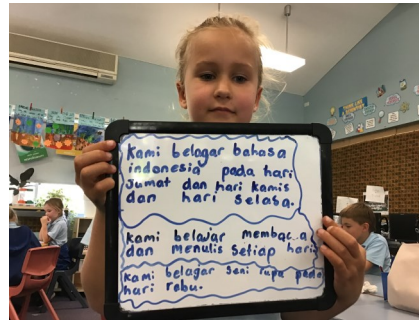 kami belagar bahasa
indonesia pada hari
jumat dan hari kamis
dan hari selasa.
kami belajar membaca
dan menulis setiap hari
kami belagar seni rupa pada
hari rabu.